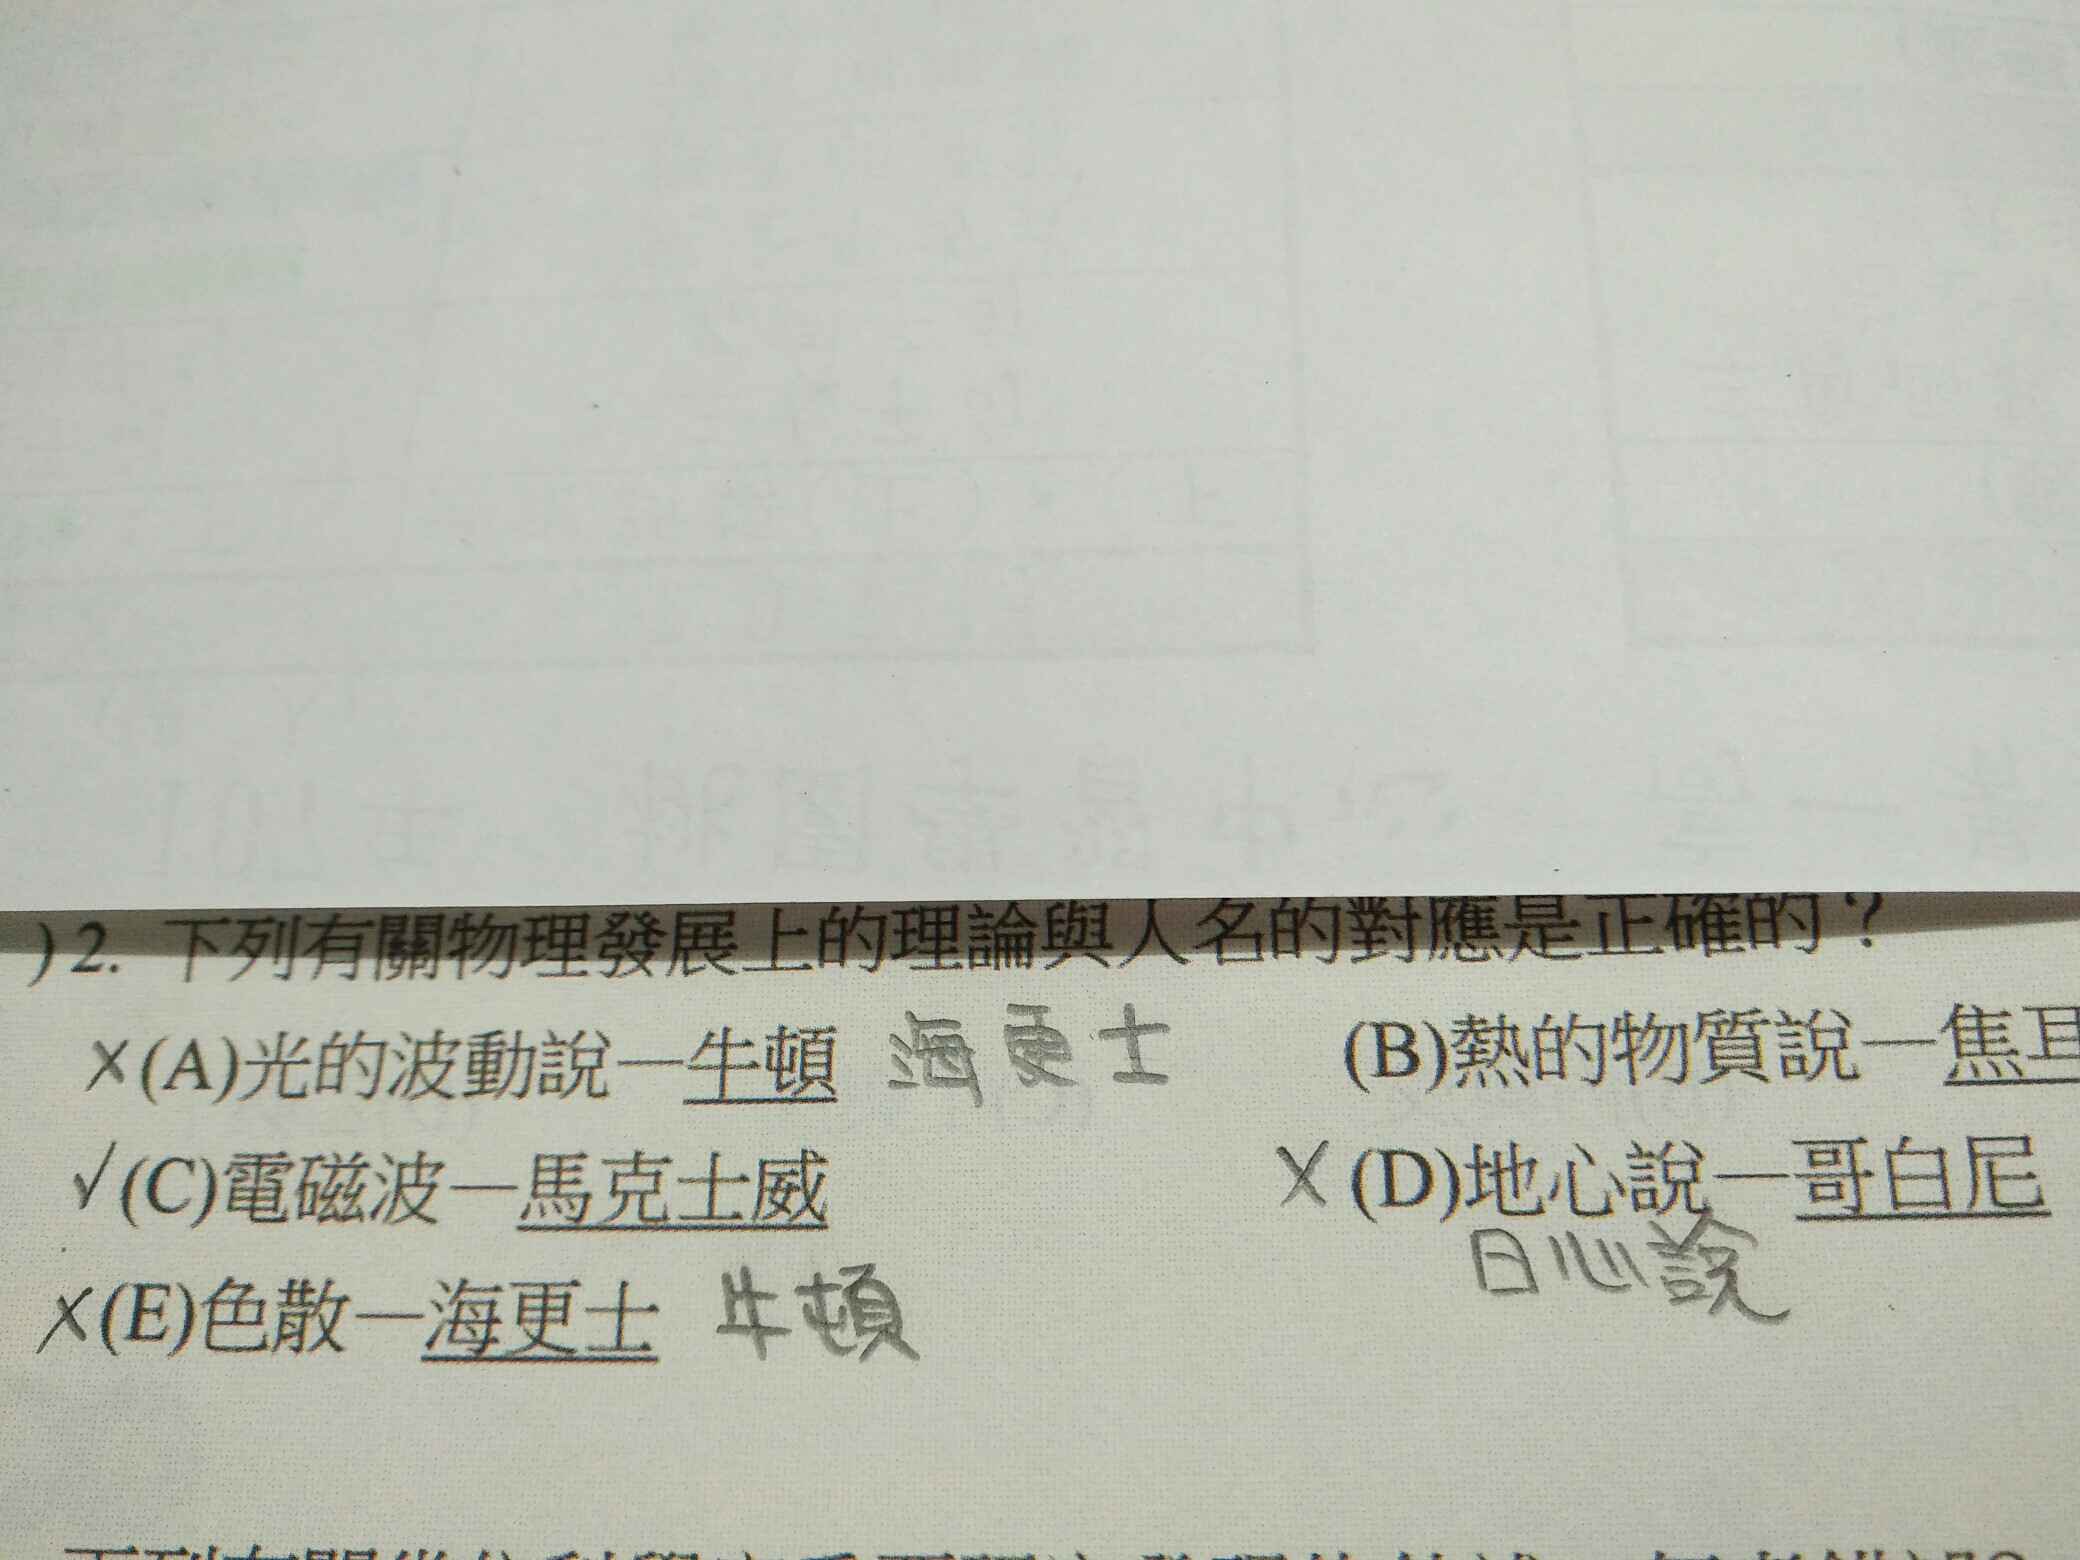 )2. 下列有關物理發展上的理論與人名的對應是正確的？
×(A)光的波動說—牛頓 海更士 (B)熱的物質說—焦耳
✓(C)電磁波—馬克士威 ×(D)地心說—哥白尼
日心說
×(E)色散—海更士 牛頓